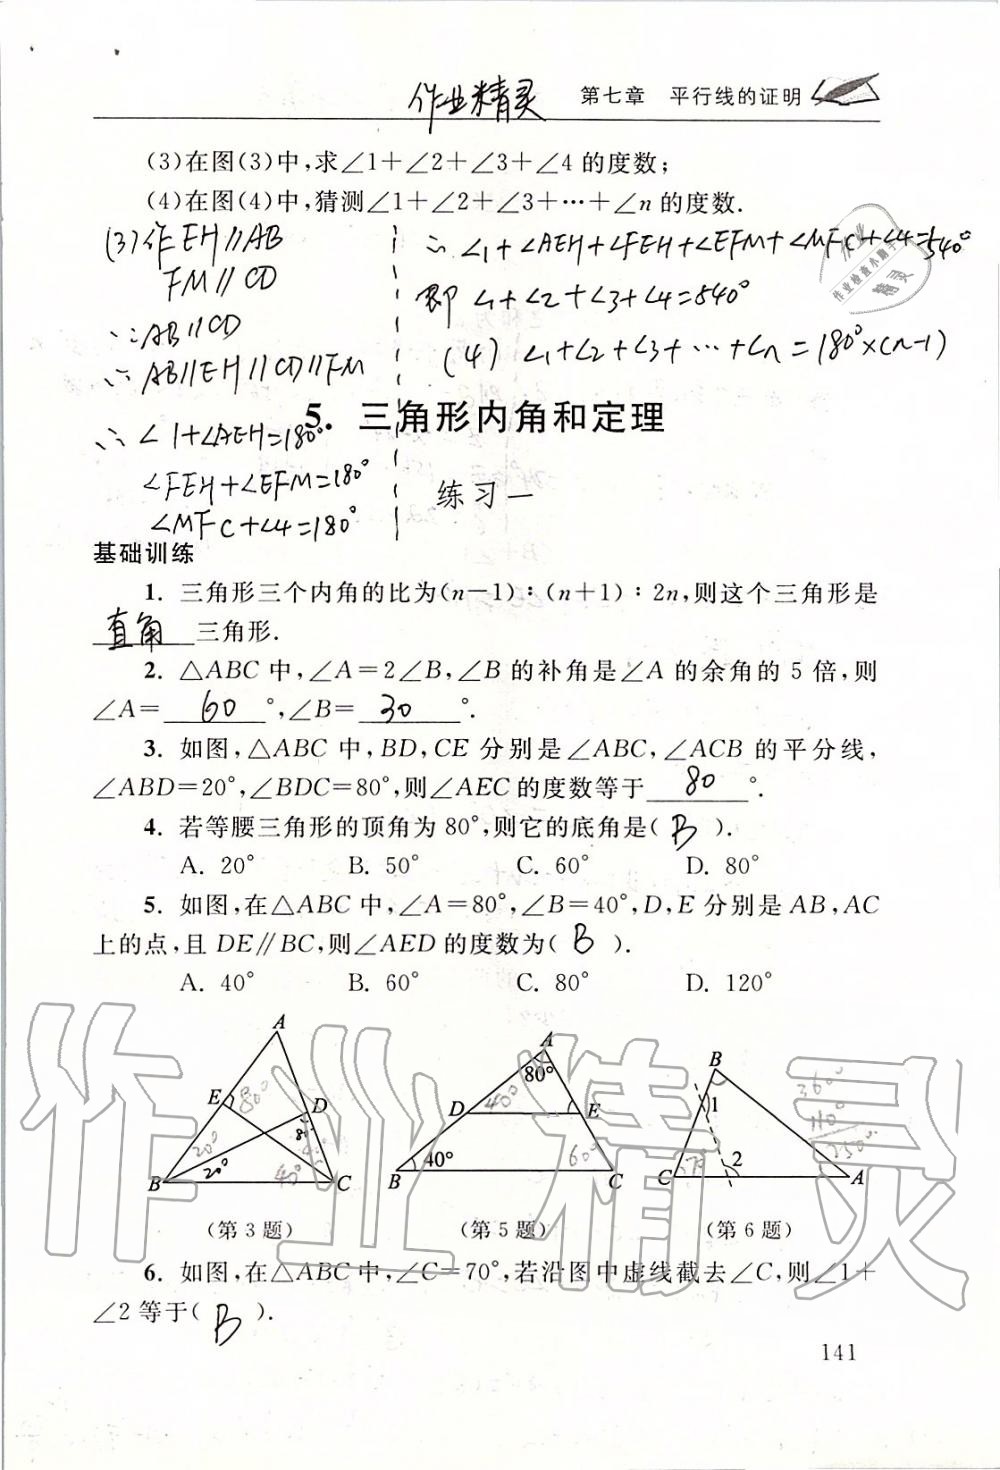 作业精灵 第七章 平行线的证明
(3)在图(3)中,求∠1+∠2+∠3+∠4的度数;
(4)在图(4)中,猜测∠1+∠2+∠3+…+∠n的度数.
(3)作EH∥AB
FM∥CD
∵AB∥CD
∴AB∥EH∥CD∥FM
∴∠1+∠AEH=180°
∠FEH+∠EFM=180°
∠MFC+∠4=180°
∴∠1+∠AEH+∠FEH+∠EFM+∠MFC+∠4=540°
即∠1+∠2+∠3+∠4=540°
(4)∠1+∠2+∠3+…+∠n=180°×(n-1)
作业
作业检查小助手
精灵
5. 三角形内角和定理
练习一
基础训练
1. 三角形三个内角的比为(n-1)∶(n+1)∶2n,则这个三角形是
直角三角形.
2. △ABC中,∠A=2∠B,∠B的补角是∠A的余角的5倍,则
∠A=60°,∠B=30°.
3. 如图,△ABC中,BD,CE分别是∠ABC,∠ACB的平分线,
∠ABD=20°,∠BDC=80°,则∠AEC的度数等于80°.
4. 若等腰三角形的顶角为80°,则它的底角是( B ).
A. 20° B. 50° C. 60° D. 80°
5. 如图,在△ABC中,∠A=80°,∠B=40°,D,E分别是AB,AC
上的点,且DE∥BC,则∠AED的度数为( B ).
A. 40° B. 60° C. 80° D. 120°
A
E 80° D
20° 20° 40°
B C
(第3题)
A
80°
D 40° E
40° 60°
B C
(第5题)
B
1
70° 2
C A
360°
110°
250°
(第6题)
6. 如图,在△ABC中,∠C=70°,若沿图中虚线截去∠C,则∠1+
∠2等于( B ).
141
作业精灵